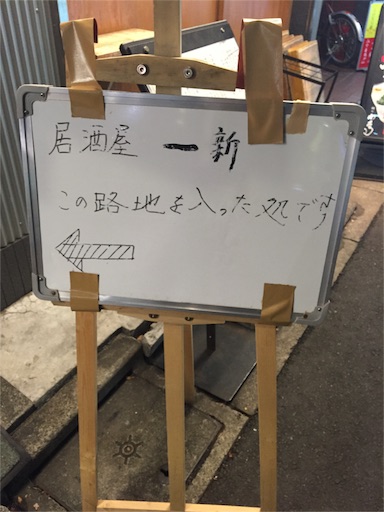 居酒屋 一新
この路地を入った処です